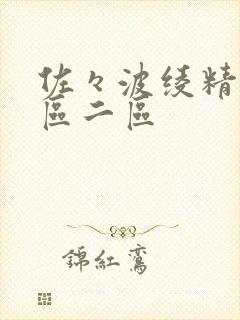 佐々波绫精
區二區
錦紅鸞